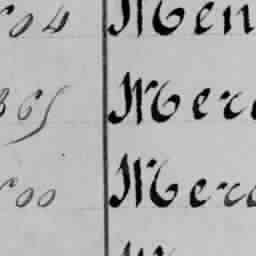 504 Men
865 Merc
500 Merc